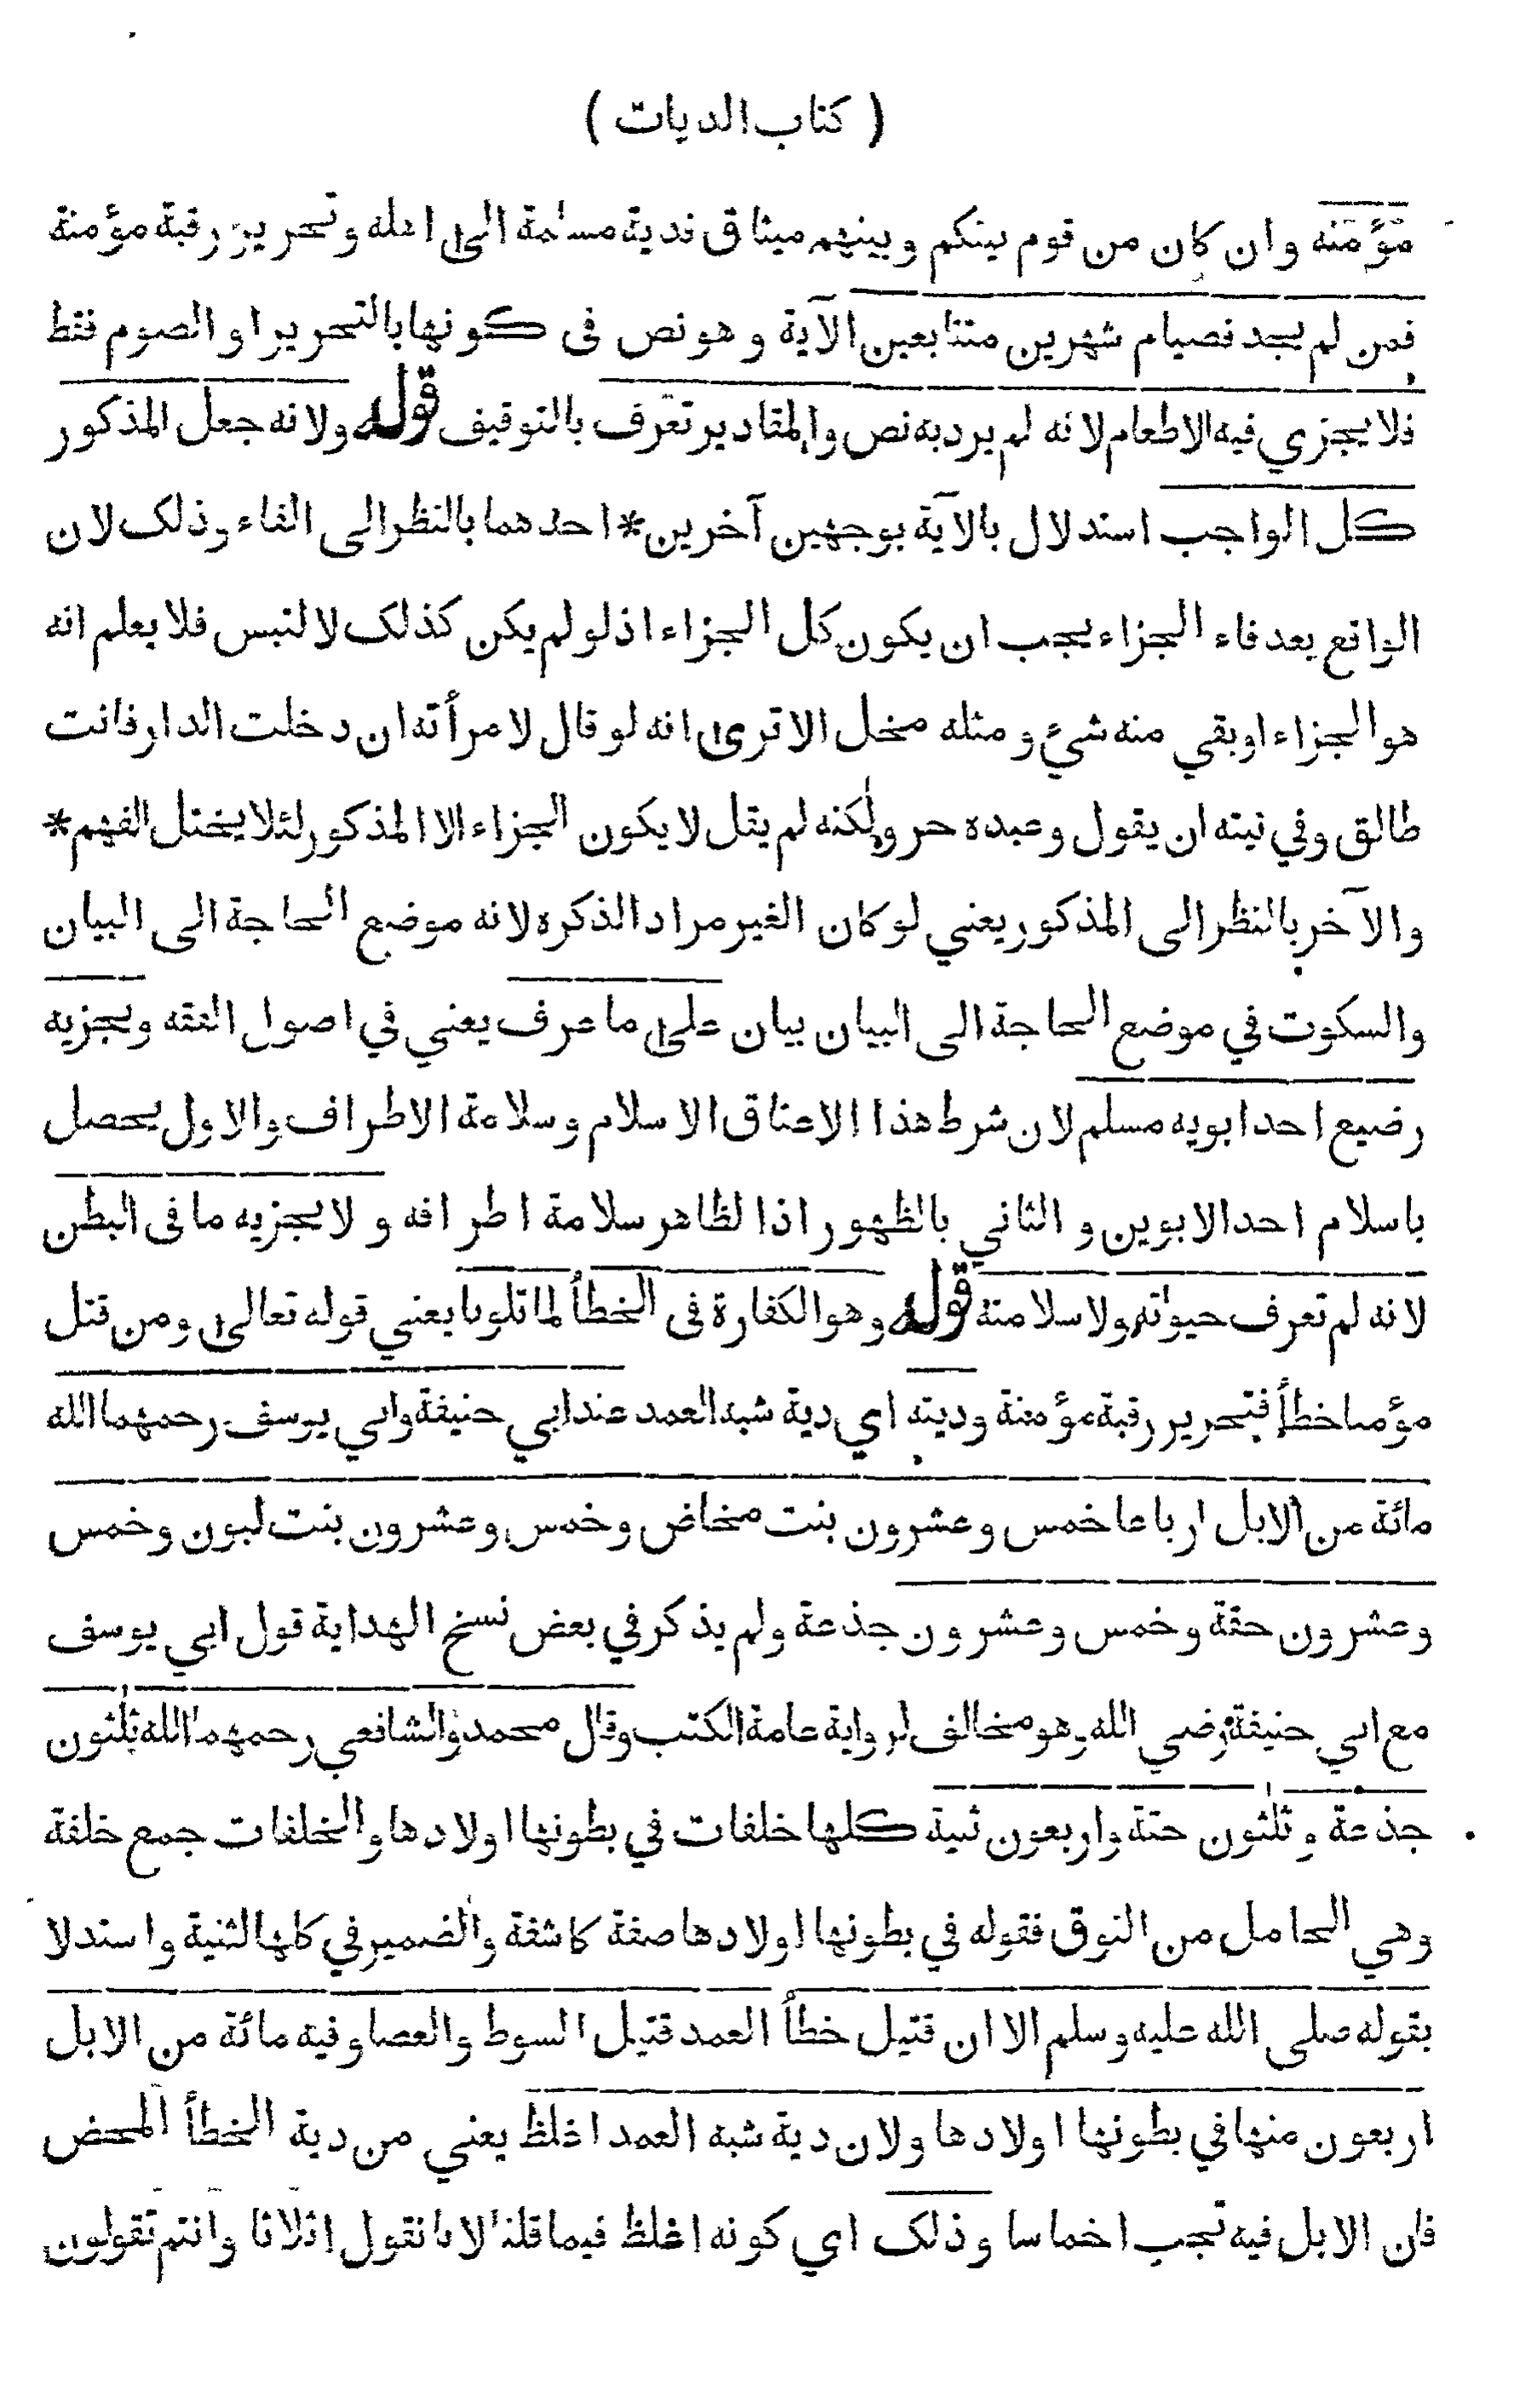 ( كتاب الديات )
مؤمنة وان كان من قوم بينكم وبينهم ميثاق فدية مسلمة الى اهله وتحرير رقبة مؤمنة
فمن لم يجد فصيام شهرين متتابعين الآية وهو نص فى كونها بالتحرير او الصوم فقط
فلا يجزي فيه الاطعام لانه لم يرد به نص والمقادير تعرف بالتوقيف قوله ولانه جعل المذكور
كل الواجب استدلال بالآية بوجهين آخرين * احدهما بالنظر الى الفاء وذلك لان
الواقع بعد فاء الجزاء يجب ان يكون كل الجزاء اذ لو لم يكن كذلك لالتبس فلا يعلم انه
هو الجزاء او بقي منه شيء ومثله مخل الا ترى انه لو قال لامرأته ان دخلت الدار فانت
طالق وفي نيته ان يقول وعبده حر ولكنه لم يقل لا يكون الجزاء الا المذكور لئلا يختل الفهم *
والآخر بالنظر الى المذكور يعني لو كان الغير مرادا لذكره لانه موضع الحاجة الى البيان
والسكوت في موضع الحاجة الى البيان بيان على ما عرف يعني في اصول الفقه ويجزيه
رضيع احد ابويه مسلم لان شرط هذا الاعتاق الاسلام وسلامة الاطراف والاول يحصل
باسلام احد الابوين والثاني بالظهور اذ الظاهر سلامة اطرافه ولا يجزيه ما فى البطن
لانه لم تعرف حيوته ولا سلامته قوله وهو الكفارة فى الخطأ لما تلونا يعني قوله تعالى ومن قتل
مؤمنا خطأ فتحرير رقبة مؤمنة وديته اي دية شبه العمد عند ابي حنيفة وابي يوسف رحمهما الله
مائة من الابل ارباعا خمس وعشرون بنت مخاض وخمس وعشرون بنت لبون وخمس
وعشرون حقة وخمس وعشرون جذعة ولم يذكر في بعض نسخ الهداية قول ابي يوسف
مع ابي حنيفة رضي الله وهو مخالف لرواية عامة الكتب وقال محمد والشافعي رحمهما الله ثلثون
جذعة وثلثون حقة واربعون ثنية كلها خلفات في بطونها اولادها والخلفات جمع خلفة
وهي الحامل من النوق فقوله في بطونها اولادها صفة كاشفة والضمير في كلها للثنية واستدلا
بقوله صلى الله عليه وسلم الا ان قتيل خطأ العمد قتيل السوط والعصا وفيه مائة من الابل
اربعون منها في بطونها اولادها ولان دية شبه العمد اغلظ يعني من دية الخطأ المحض
فان الابل فيه تجب اخماسا وذلك اي كونه اغلظ فيما قلنا لانا نقول اثلاثا وانتم تقولون